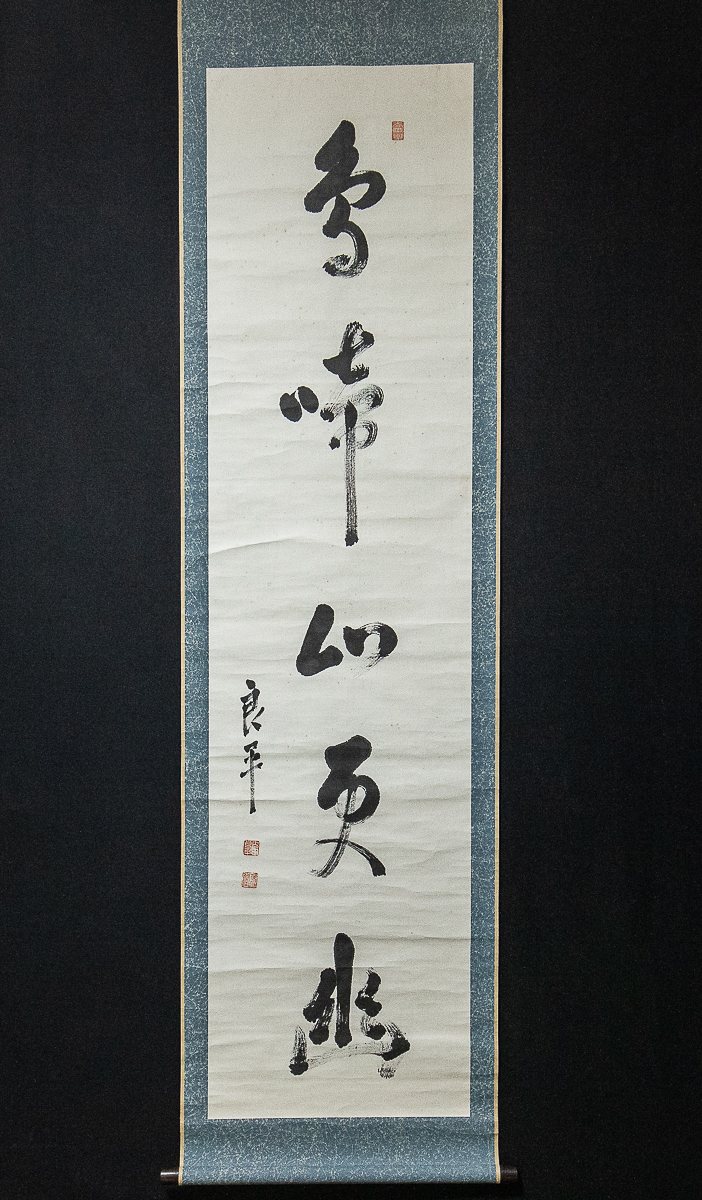 鳥啼山更幽
良平